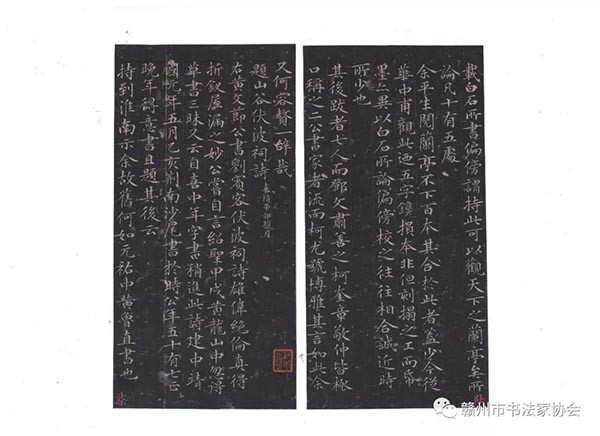 載白石所書偏傍謂持此可以觀天下之蘭亭矣所
論凡十有五處
余平生閱蘭亭不下百本其合於此者蓋少今從
華中甫觀此迺五字鑱損本非但刻搨之工而帋
墨亦異以白石所論偏傍校之往往相合誠近時
所少也
其後跋者七人而鄧文肅善之柯奎章敬仲皆極
口稱之二公書家者流而柯尤號博雅其言如此余
又何容贅一辭哉
題山谷伏波祠詩 嘉靖辛卯
右黃文節公書劉賓客伏波祠詩雄偉絕倫真得
折釵屋漏之妙公嘗自言紹聖甲戌黃龍山中忽得
草書三昧又云自喜中年字書稍進此詩建中靖
國元年五月乙亥荊南沙尾書於時公年五十有七云
晚年得意書且題其後云
持到淮南示余故舊何如元祐中黃魯直書也
赣州市书法家协会